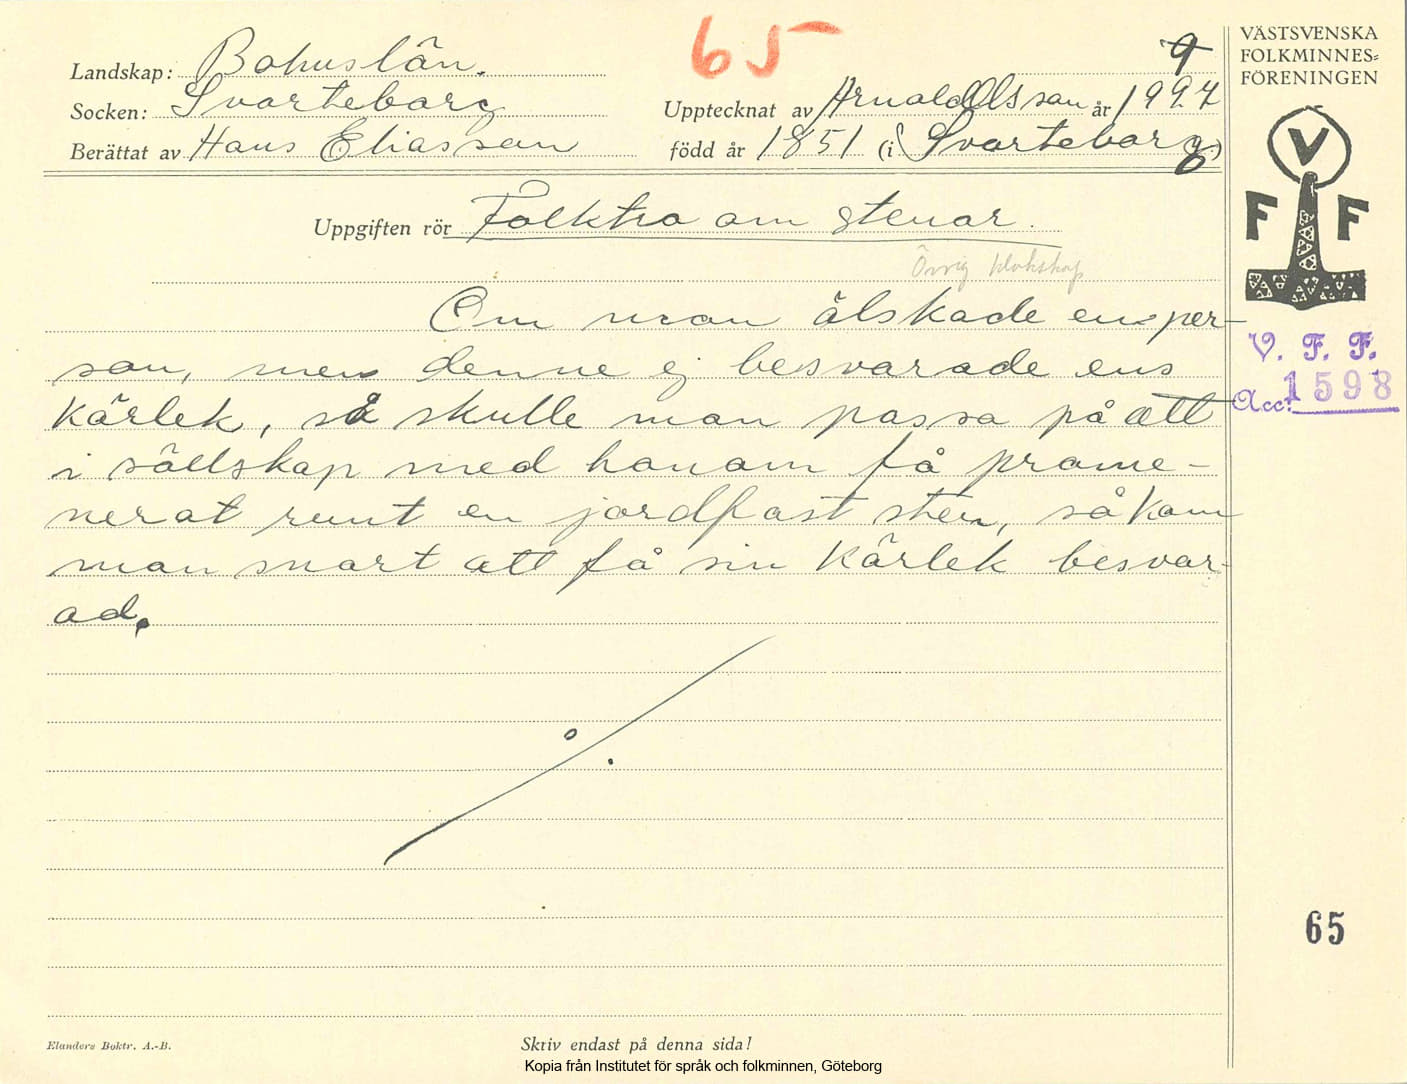 65
VÄSTSVENSKA
FOLKMINNES=
FÖRENINGEN
Landskap: Bohuslän.
9
Socken: Svarteborg
Upptecknat av Arnold Olsson år 1927
Berättat av Hans Eliasson
född år 1851 (i Svarteborg)
V
F F
Uppgiften rör Folktro om stenar.
Övrig klokskap
Om man älskade en per-
son, men denne ej besvarade ens
kärlek, så skulle man passa på att
i sällskap med honom få prome-
nerat runt en jordfast sten, så kom
man snart att få sin kärlek besvar-
ad.
V. F. F.
Acc: 1598
65
Elanders Boktr. A.-B.
Skriv endast på denna sida!
Kopia från Institutet för språk och folkminnen, Göteborg